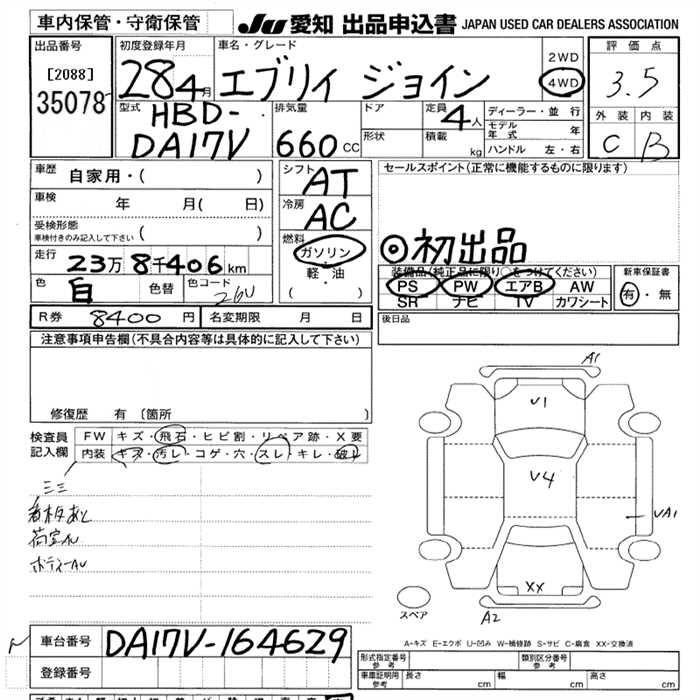 車内保管・守衛保管
JU 愛知 出品申込書 JAPAN USED CAR DEALERS ASSOCIATION
出品番号
[2088]
35078
初度登録年月
28 4月
車名・グレード
エブリィ ジョイン
2WD
4WD
評価点
3.5
外装 内装
C B
型式
HBD-
DA17V
排気量
660 CC
ドア
形状
定員 4人
積載 kg
ディーラー・並行
モデル年式 年
ハンドル 左・右
車歴 自家用・( )
車検 年 月( 日)
受検形態
車検付きのみ記入して下さい ( )
走行 23万8千406km
色 白 色替 色コード 26U
シフト AT
冷房 AC
燃料
ガソリン
・
軽・油
( )
セールスポイント(正常に機能するものに限ります)
◎初出品
装備品(純正品に限り○をつけてください)
PS PW エアB AW
SR ナビ TV カワシート
新車保証書
有・無
R券 8400円 名変期限 月 日
後日品
注意事項申告欄(不具合内容等は具体的に記入して下さい)
修復歴 有 〔箇所 〕
検査員
記入欄
FW キズ・飛石・ヒビ割・リペア跡・X要
内装 キズ・汚レ・コゲ・穴・スレ・キレ・破レ
ミミ
看板あと
荷室ル
ボディーAU
A1
U1
U4
UA1
XX
A2
スペア
A-キズ E-エクボ U-凹み W-補修跡 S-サビ C-腐食 XX-交換済
車台番号 DA17V-164629
登録番号
形式指定番号
参考
類別区分番号
参考
車庫証明用
参考
長さ cm 幅 cm 高さ cm